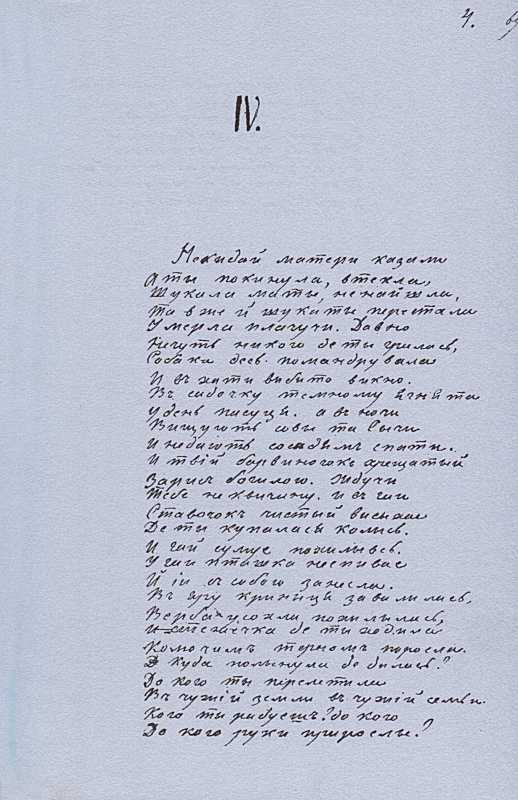 4.
IV.
Некидай матери казали
А ты покинула, втекла,
Шукала маты, ненайшла,
Та вже й шукаты перестала
Умерла плачучи. Давно
Нечуть никого де ты гралась,
Собака десь помандрувала
И въ хати выбито викно.
Въ садочку темному ягнята
Удень пасуця. а въ ночи
Вищуютъ совы та сычи
И недаютъ сосидамъ спаты.
И твій барвиночокъ хрещатый
Заризъ богилою. Ждучи
Тебе неквичану. и въ гаи
Ставочокъ чистый висыхае
Де ты купалася колись.
И гай сумуе похиливсь.
У гаи пташка неспивае
Й іи съ собою занесла.
Въ яру криниця завалилась,
Верба усохла, похилылась,
И стежечка де ты ходила
Колючимъ терномъ поросла.
Де куда полинула, де билась?
До кого ты перелетила
Въ чужій земли въ чужій семьи.
Кого ты радуешъ? до кого
До кого руки приросли?